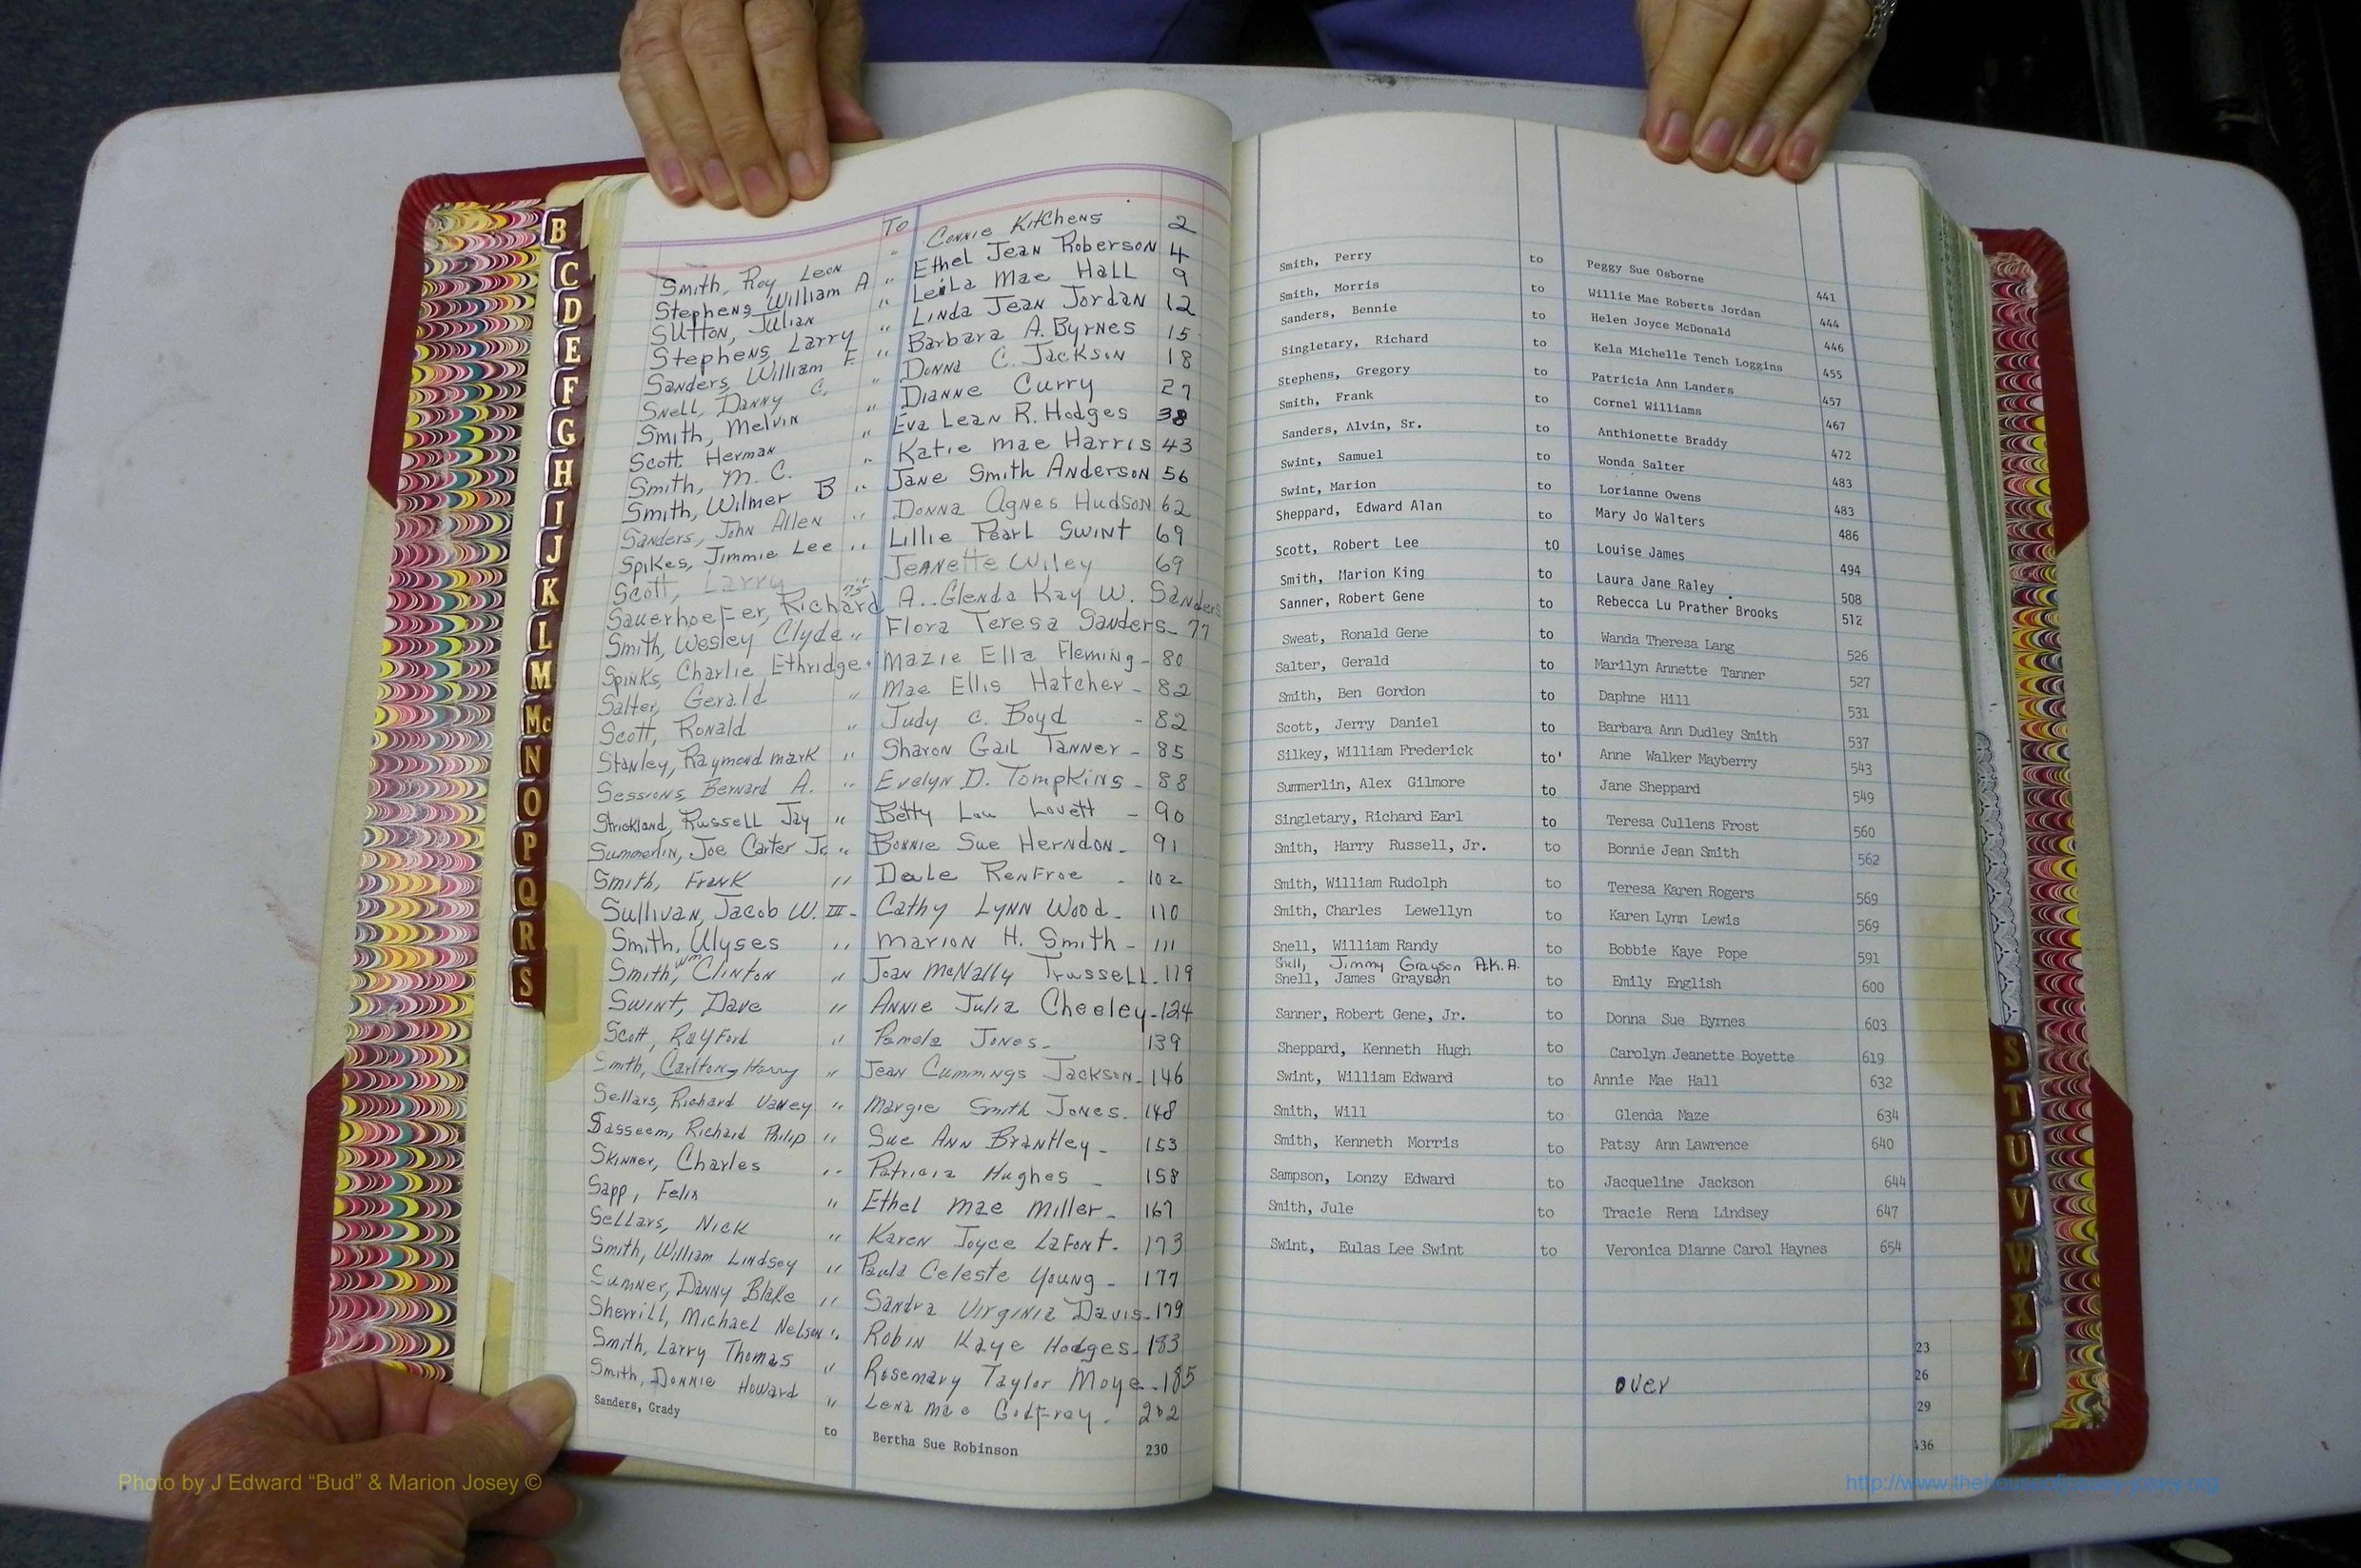 B
C
D
E
F
G
H
I
J
K
L
M
Mc
N
O
P
Q
R
S
Smith, Roy Leon To Connie Kitchens 2
Stephens, William A " Ethel Jean Roberson 4
Sutton, Julian " Leila Mae Hall 9
Stephens, Larry " Linda Jean Jordan 12
Sanders, William F. " Barbara A. Byrnes 15
Snell, Danny C. " Donna C. Jackson 18
Smith, Melvin " Dianne Curry 27
Scott Herman " Eva Lean R. Hodges 38
Smith, M. C. " Katie Mae Harris 43
Smith, Wilmer B " Jane Smith Anderson 56
Sanders, John Allen " Donna Agnes Hudson 62
Spikes, Jimmie Lee " Lillie Pearl Swint 69
Scott, Larry " Jeanette Wiley 69
Sauerhoefer, Richard A.. Glenda Kay W. Sanders 75
Smith, Wesley Clyde " Flora Teresa Sanders - 77
Spinks, Charlie Ethridge " Mazie Ella Fleming - 80
Salter, Gerald " Mae Ellis Hatcher - 82
Scott, Ronald " Judy C. Boyd - 82
Stanley, Raymond Mark " Sharon Gail Tanner - 85
Sessions, Bernard A. " Evelyn D. Tompkins - 88
Strickland, Russell Jay " Betty Lou Lovett - 90
Summerlin, Joe Carter Jr. " Bonnie Sue Herndon - 91
Smith, Frank " Dale Renfroe - 102
Sullivan, Jacob W. III - Cathy Lynn Wood - 110
Smith, Ulyses " Marion H. Smith - 111
Smith, Wm Clinton " Joan McNally Trussell - 119
Swint, Dave " Annie Julia Cheeley - 124
Scott, Rayford " Pamela Jones - 139
Smith, Carlton Harry " Jean Cummings Jackson - 146
Sellars, Richard " Margie Smith Jones - 148
Sasseem, Richard Philip " Sue Ann Brantley - 153
Skinner, Charles " Patricia Hughes - 158
Sapp, Felix " Ethel Mae Miller - 167
Sellars, Nick " Karen Joyce LaFont - 173
Smith, William Lindsey " Paula Celeste Young - 177
Sumner, Danny Blake " Sandra Virginia Davis - 179
Sherrill, Michael Nelson " Robin Kaye Hodges - 183
Smith, Larry Thomas " Rosemary Taylor Moye - 185
Smith, Donnie Howard " Lena Mae Godfrey - 202
Sanders, Grady to Bertha Sue Robinson 230
Smith, Perry to Peggy Sue Osborne 441
Smith, Morris to Willie Mae Roberts Jordan 444
Sanders, Bennie to Helen Joyce McDonald 446
Singletary, Richard to Kela Michelle Tench Loggins 455
Stephens, Gregory to Patricia Ann Landers 457
Smith, Frank to Cornel Williams 467
Sanders, Alvin, Sr. to Anthionette Braddy 472
Swint, Samuel to Wonda Salter 483
Swint, Marion to Lorianne Owens 483
Sheppard, Edward Alan to Mary Jo Walters 486
Scott, Robert Lee t0 Louise James 494
Smith, Marion King to Laura Jane Raley 508
Sanner, Robert Gene to Rebecca Lu Prather Brooks 512
Sweat, Ronald Gene to Wanda Theresa Lang 526
Salter, Gerald to Marilyn Annette Tanner 527
Smith, Ben Gordon to Daphne Hill 531
Scott, Jerry Daniel to Barbara Ann Dudley Smith 537
Silkey, William Frederick to' Anne Walker Mayberry 543
Summerlin, Alex Gilmore to Jane Sheppard 549
Singletary, Richard Earl to Teresa Cullens Frost 560
Smith, Harry Russell, Jr. to Bonnie Jean Smith 562
Smith, William Rudolph to Teresa Karen Rogers 569
Smith, Charles Lewellyn to Karen Lynn Lewis 569
Snell, William Randy to Bobbie Kaye Pope 591
Snell, Jimmy Grayson A.K.A.
Snell, James Grayson to Emily English 600
Sanner, Robert Gene, Jr. to Donna Sue Byrnes 603
Sheppard, Kenneth Hugh to Carolyn Jeanette Boyette 619
Swint, William Edward to Annie Mae Hall 632
Smith, Will to Glenda Maze 634
Smith, Kenneth Morris to Patsy Ann Lawrence 640
Sampson, Lonzy Edward to Jacqueline Jackson 644
Smith, Jule to Tracie Rena Lindsey 647
Swint, Eulas Lee Swint to Veronica Dianne Carol Haynes 654
over
23
26
29
36
S
T
U
V
W
X
Y
Photo by J Edward “Bud” & Marion Josey ©